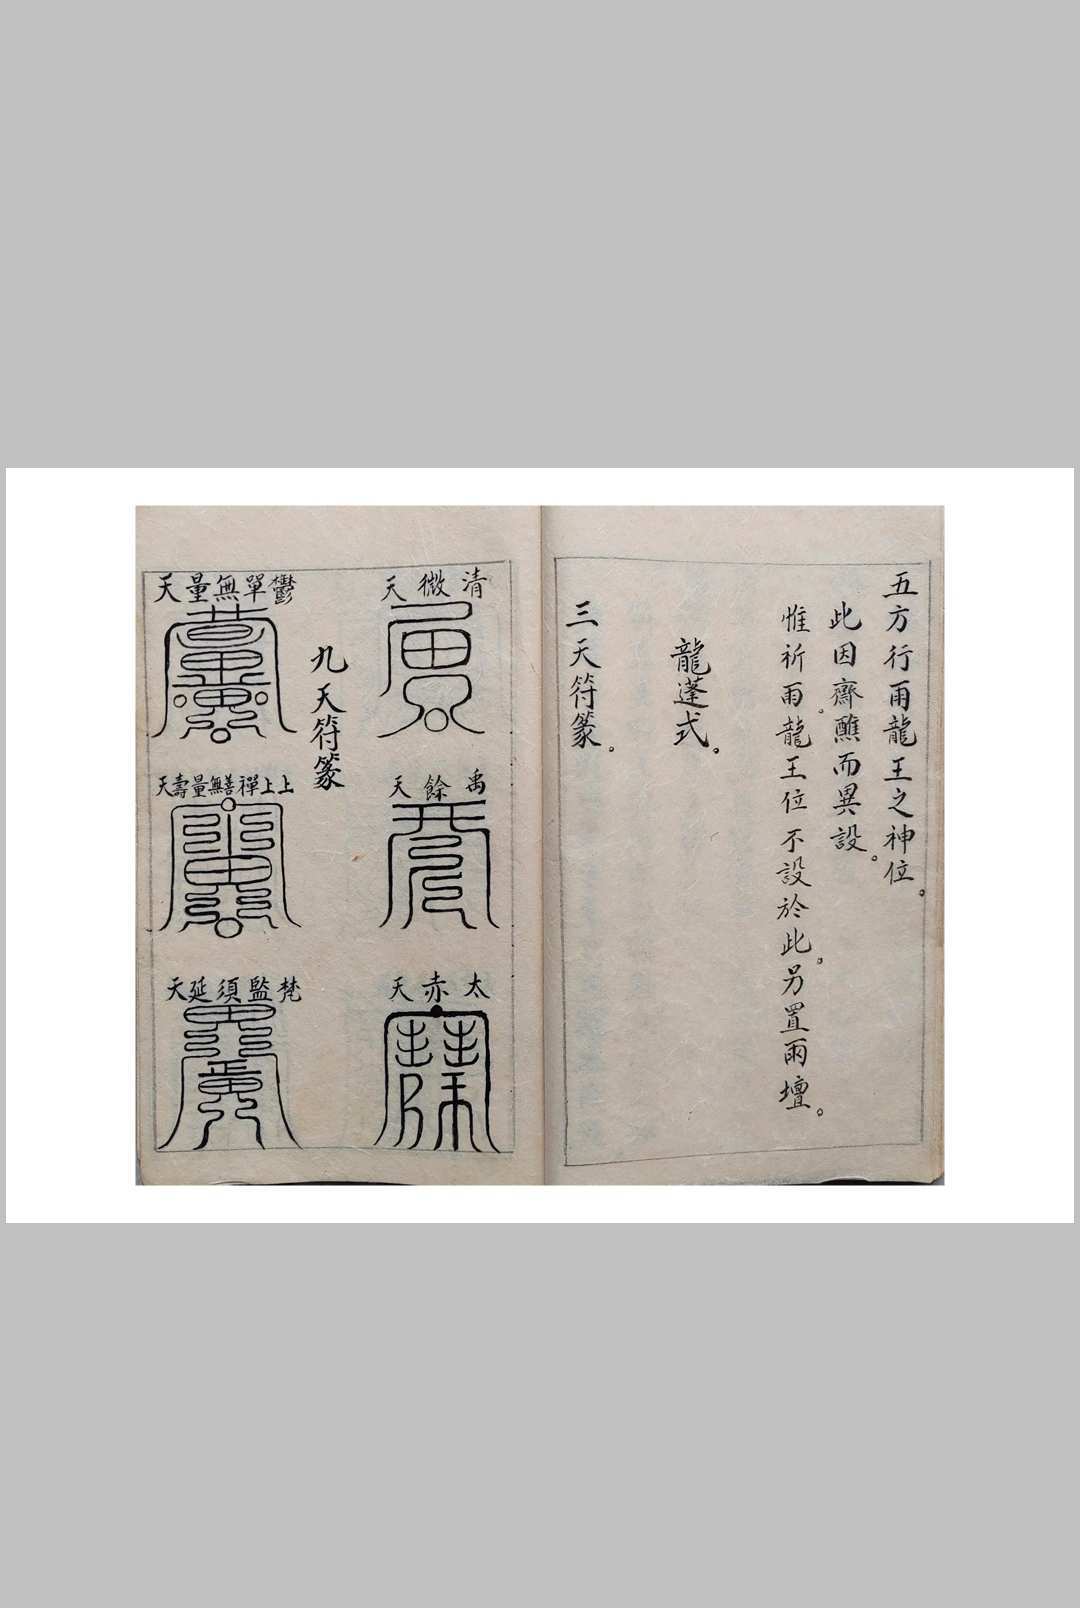 五方行雨龍王之神位。
此因齋醮而異設。
惟祈雨。龍王位不設於此。另置雨壇。
龍蓬式。
三天符篆。
清微天
禹餘天
太赤天
九天符篆
鬱單無量天
上上禪善無量壽天
梵監須延天